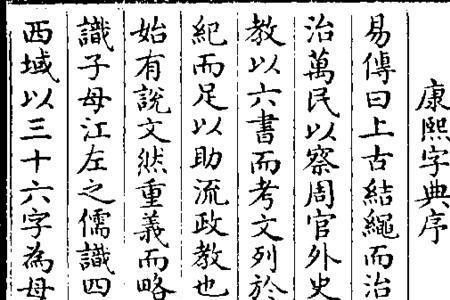 康熙字典序
易傳曰上古結繩而治
治萬民以察周官外史
教以六書而考文列於
紀而足以助流政教也
始有說文然重義而略
識子母江左之儒識四
西域以三十六字為母